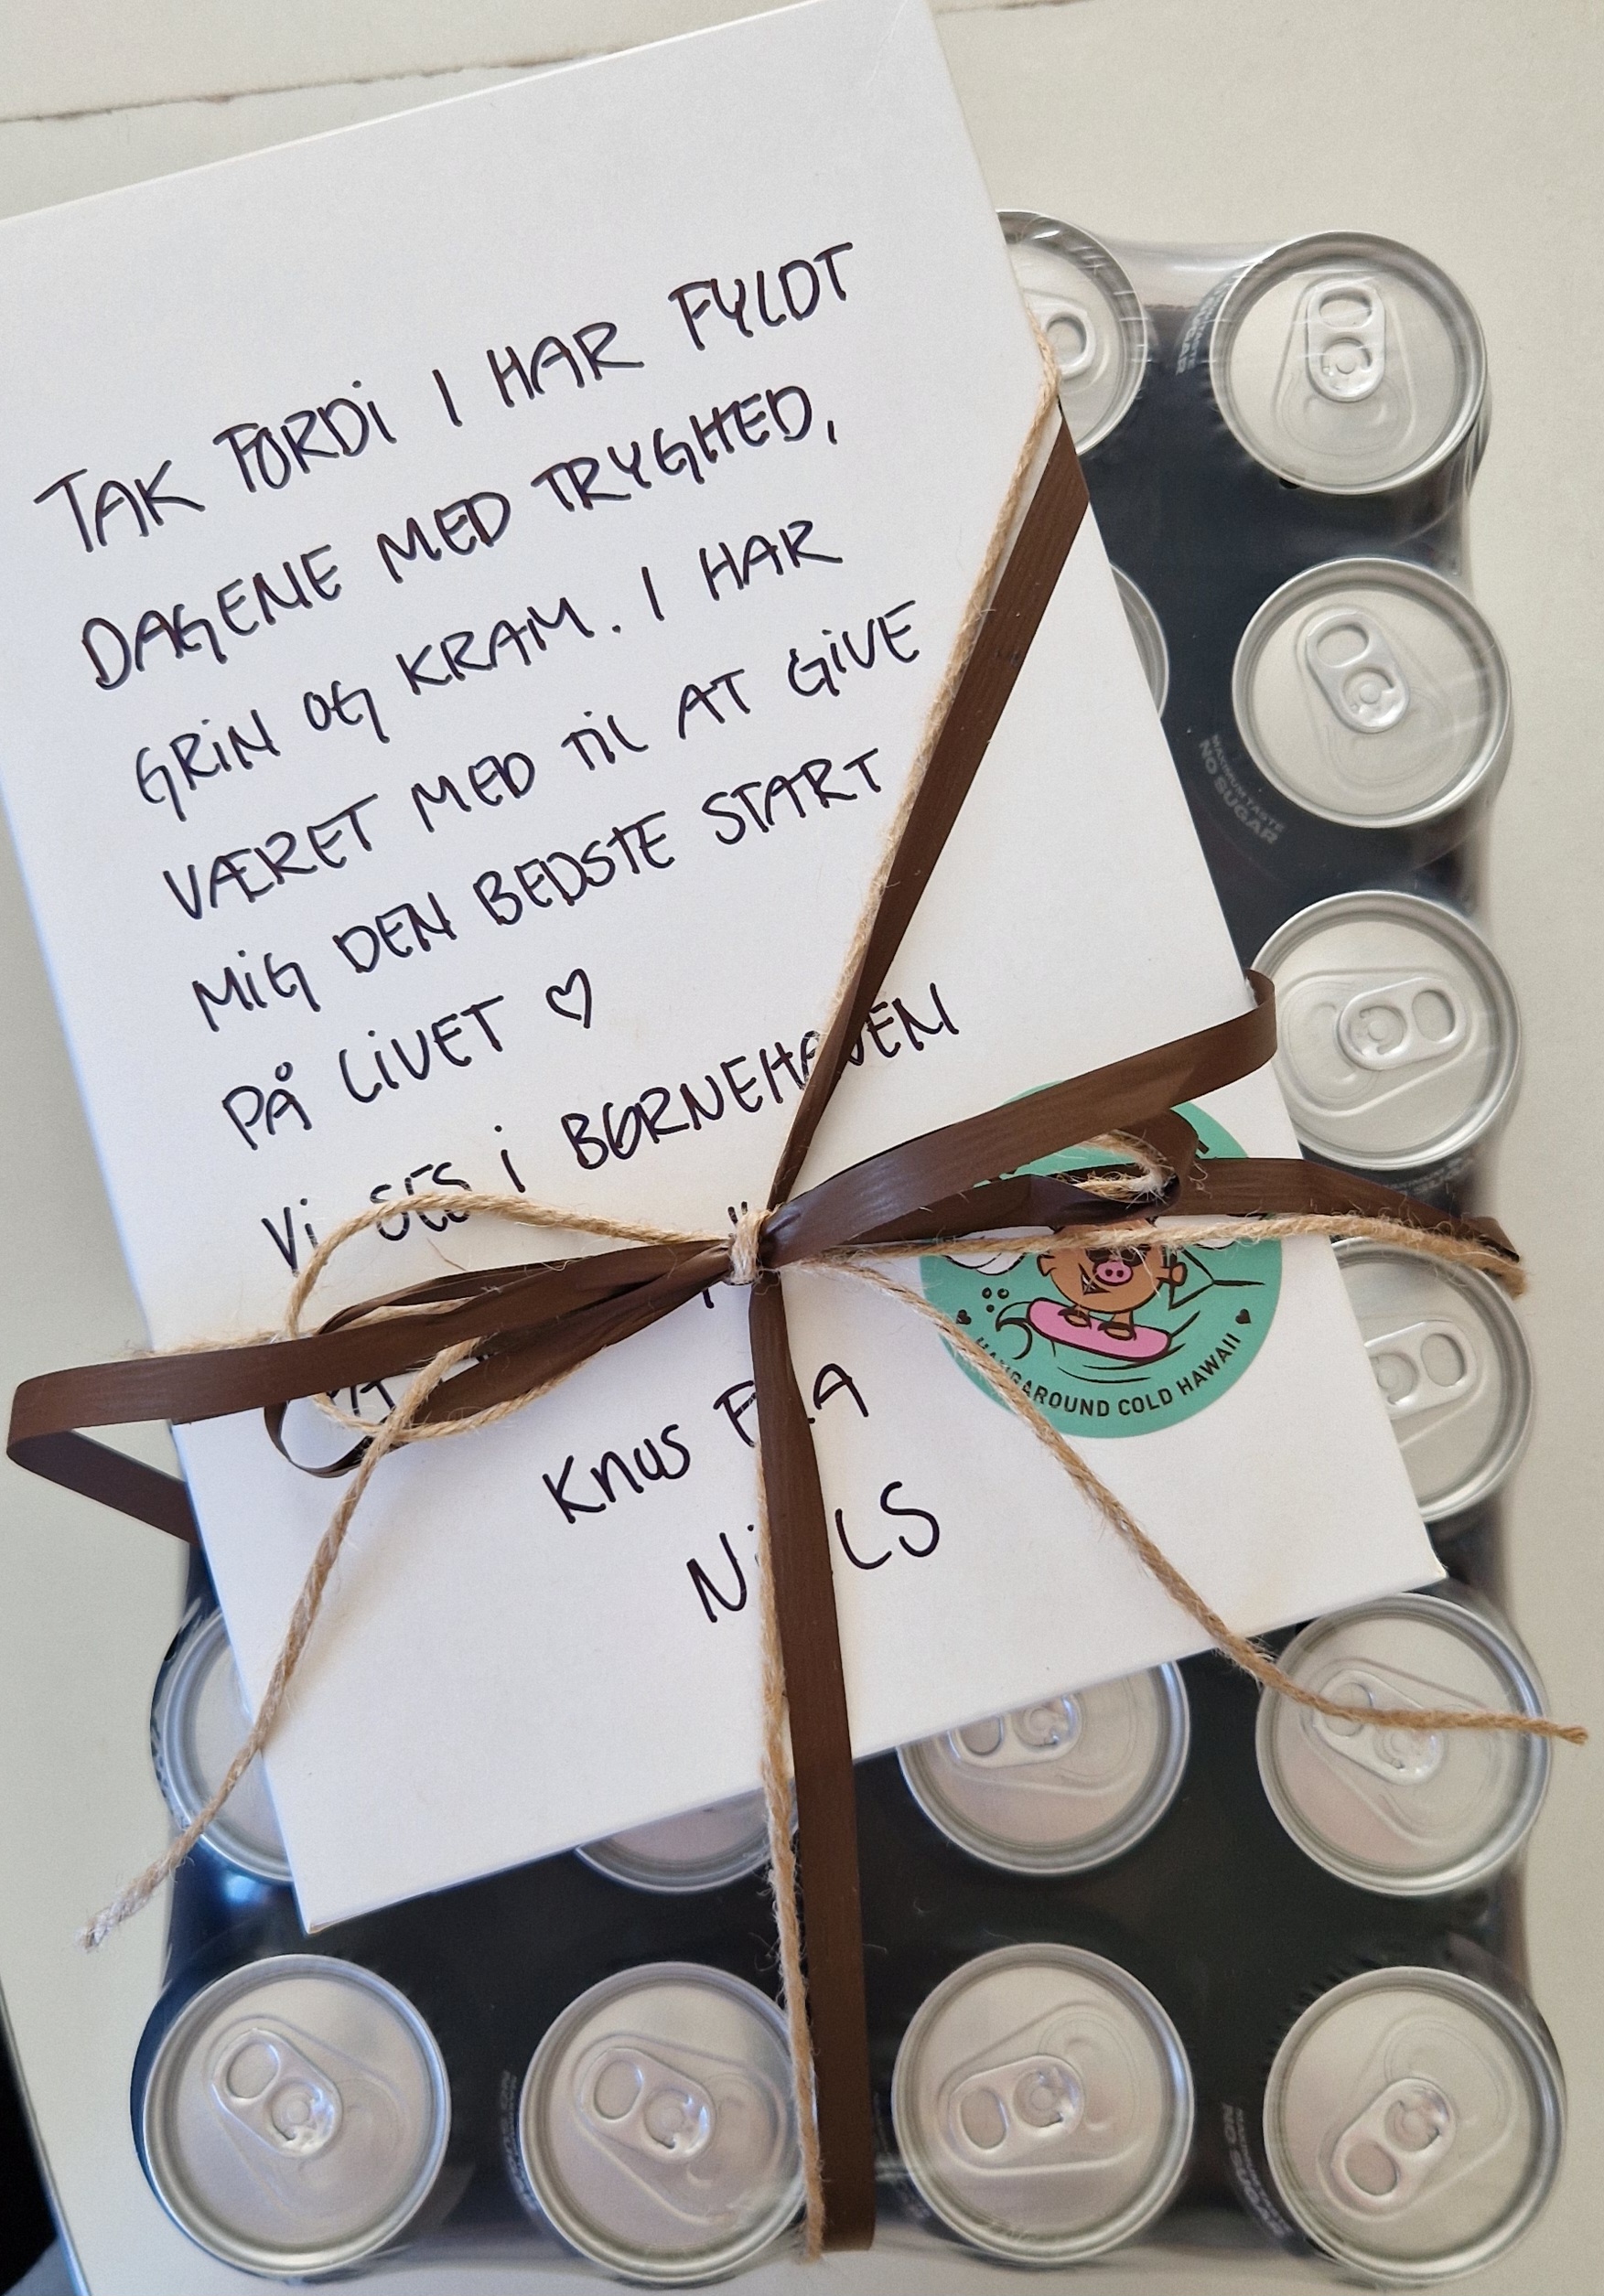 TAK FORDi I HAR FYLDT
DAGENE MED TRYGHED,
GRiN OG KRAM. I HAR
VÆRET MED TiL AT GiVE
MiG DEN BEDSTE START
PÅ LiVET ♡
Vi SES i BØRNEHAVEN
Knus FRA
NiELS
HANGAROUND COLD HAWAII
MAXIMUM TASTE
NO SUGAR